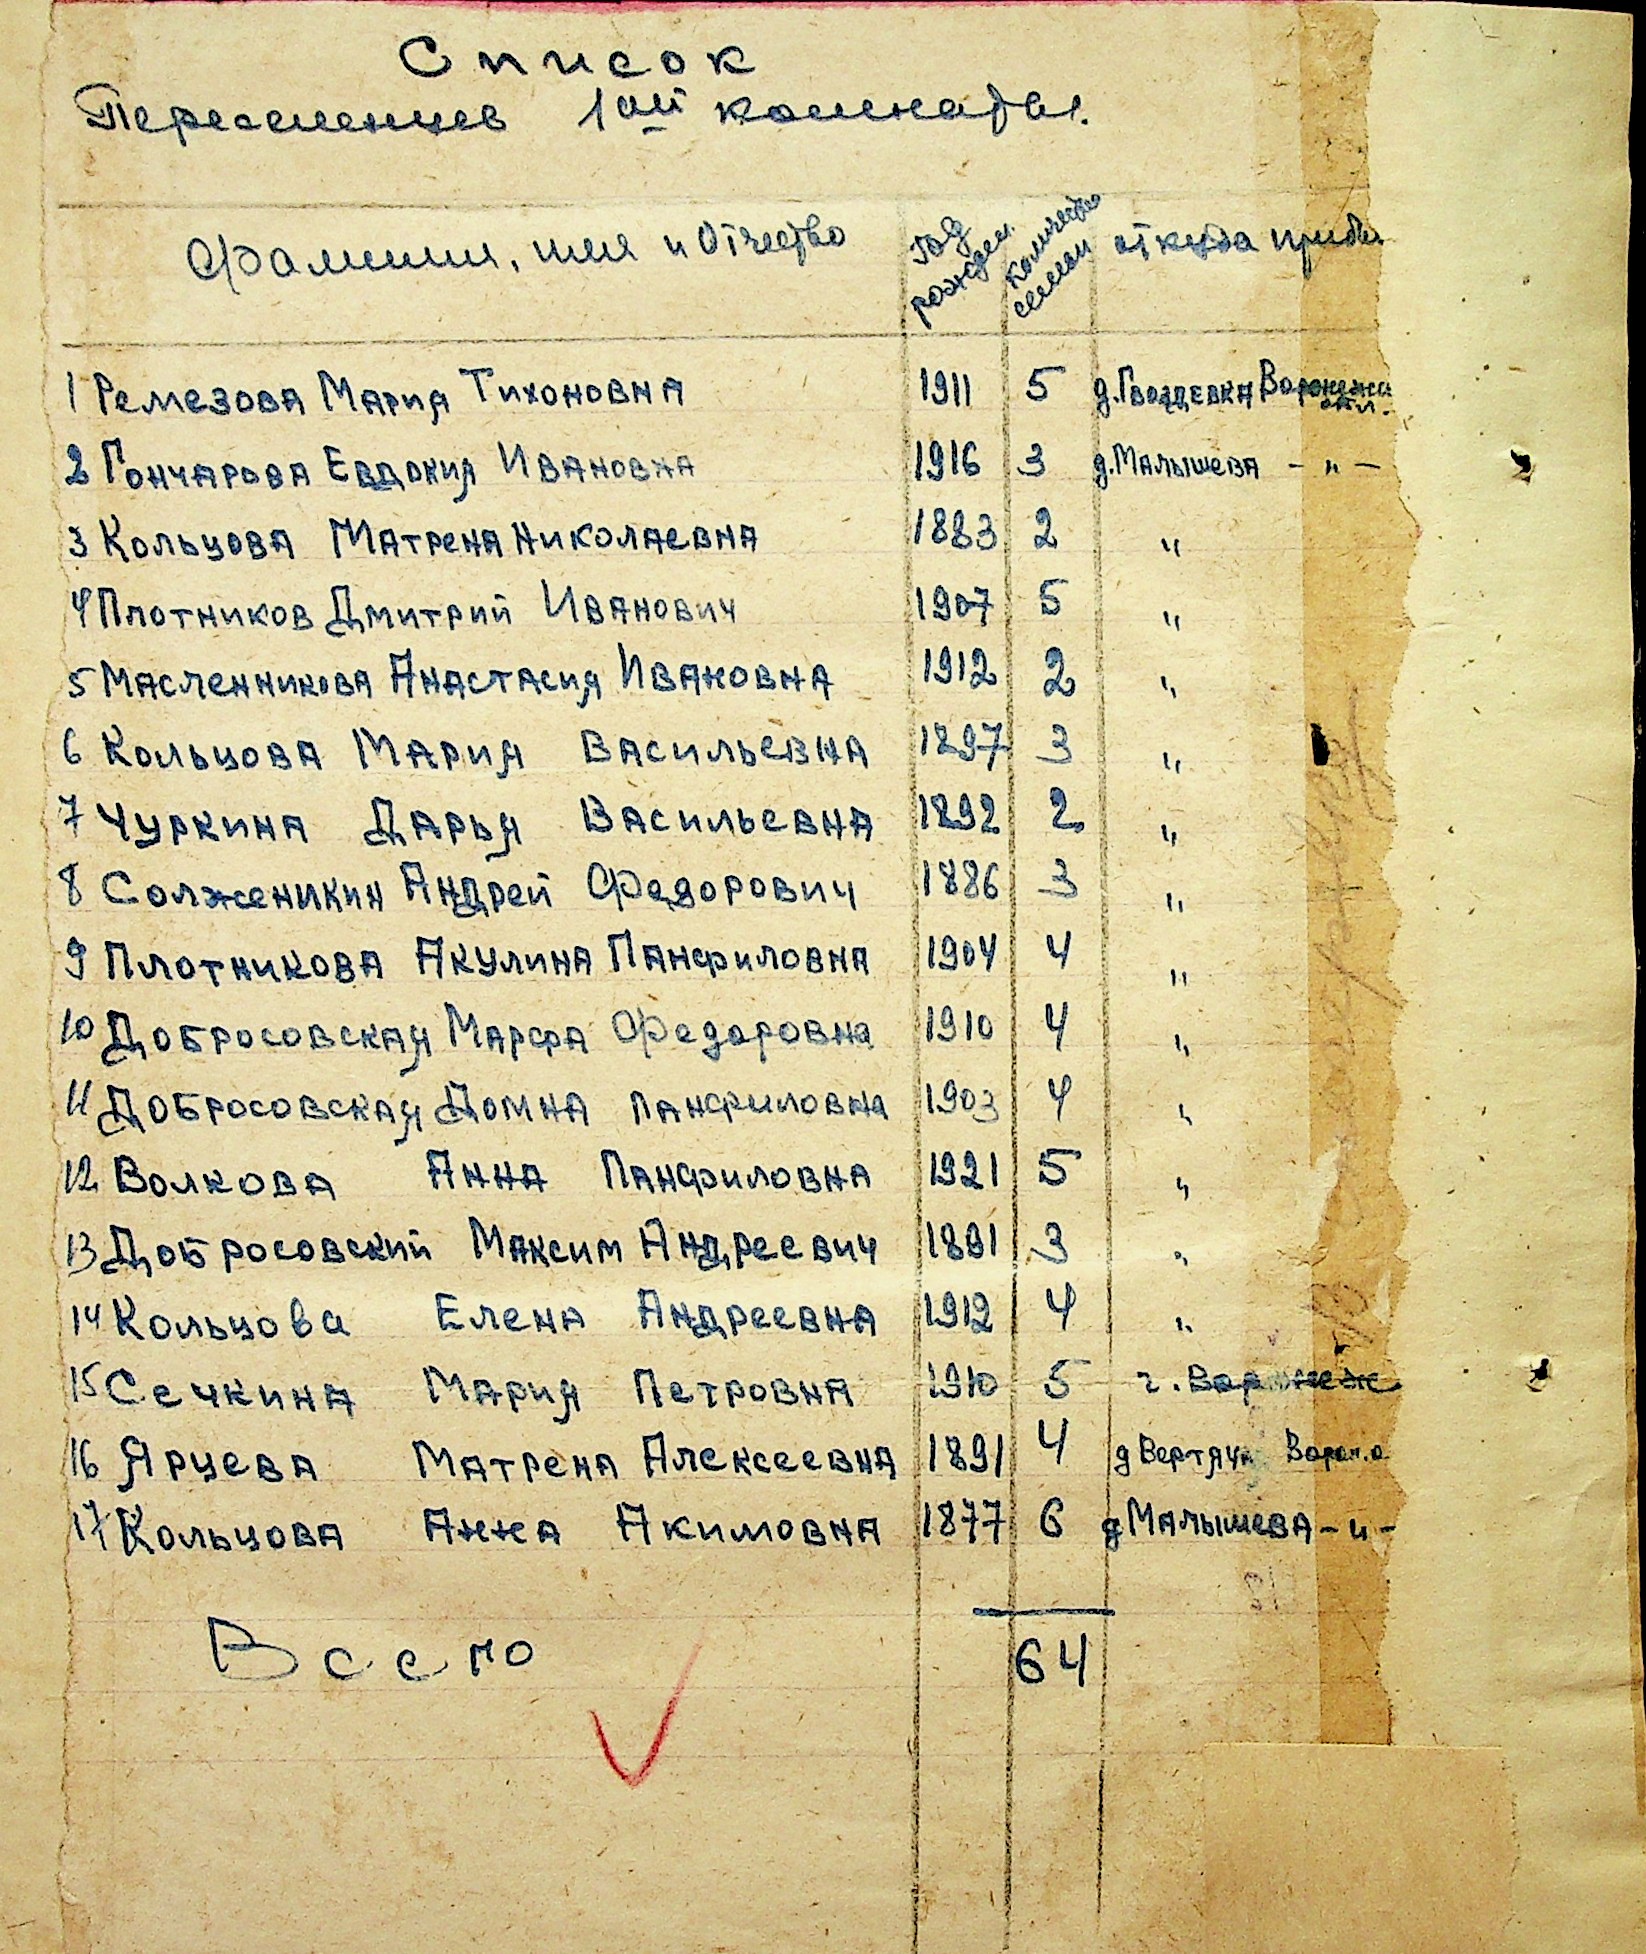 Список
Переселенцев 1ой комнаты.
Фамилии, имя и Отчество Год рожден. количество семьи откуда прибы
1 Ремезова Мария Тихоновна 1911 5 д. Гвоздевка Воронежск обл.
2 Гончарова Евдокия Ивановна 1916 3 д. Малышева - " -
3 Кольцова Матрена Николаевна 1883 2 "
4 Плотников Дмитрий Иванович 1907 5 "
5 Масленникова Анастасия Ивановна 1912 2 "
6 Кольцова Мария Васильевна 1897 3 "
7 Чуркина Дарья Васильевна 1892 2 "
8 Солженикин Андрей Федорович 1886 3 "
9 Плотникова Акулина Панфиловна 1904 4 "
10 Добросовская Марфа Федоровна 1910 4 "
11 Добросовская Домна Панфиловна 1903 4 "
12 Волкова Анна Панфиловна 1921 5 "
13 Добросовский Максим Андреевич 1891 3 "
14 Кольцова Елена Андреевна 1912 4 "
15 Сечкина Мария Петровна 1910 5 г. Воронеж
16 Ярцева Матрена Алексеевна 1891 4 д Вертячи Ворон.о
17 Кольцова Анна Акимовна 1877 6 д Малышева - " -
Всего 64